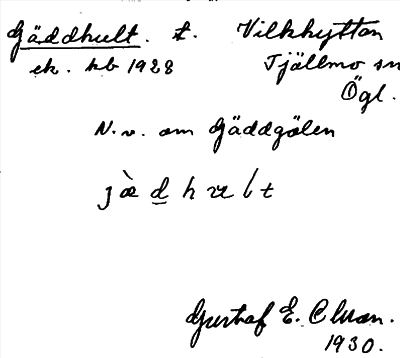 Gäddhult. t. Vilkhyttan
ek. kb 1928 Tjällmo sn
Ögl.
N.v. om Gäddgölen
jæ̀d̲hult
Gustaf E. Clman.
1930.